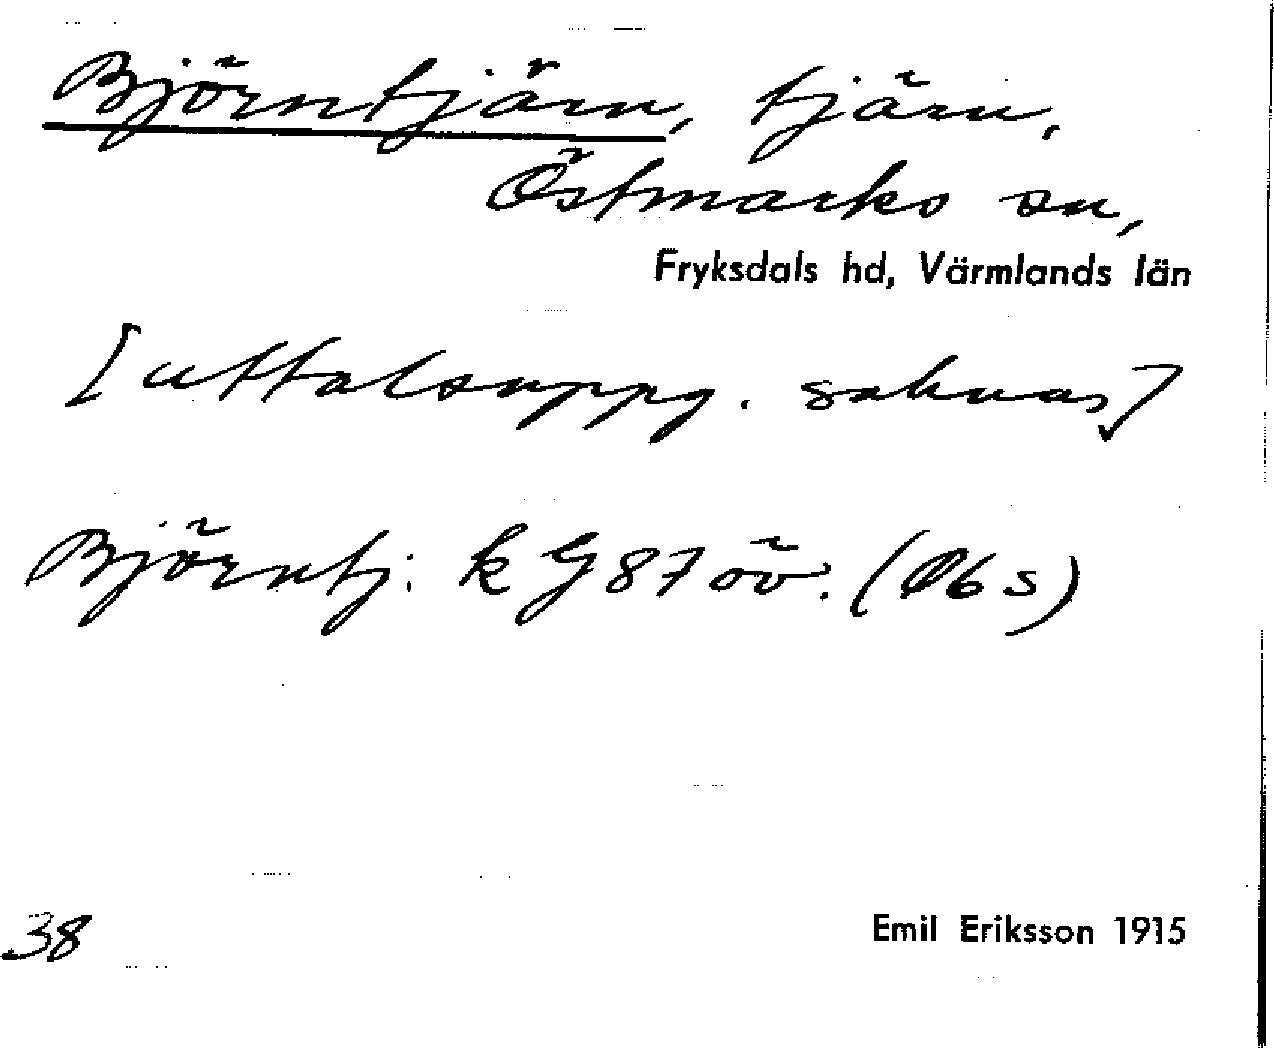 Björntjärn, tjärn,
Östmarks sn,
Fryksdals hd, Värmlands län
[uttalsuppg. saknas]
Björntj: k G 87 öv. (Öbs)
38
Emil Eriksson 1915